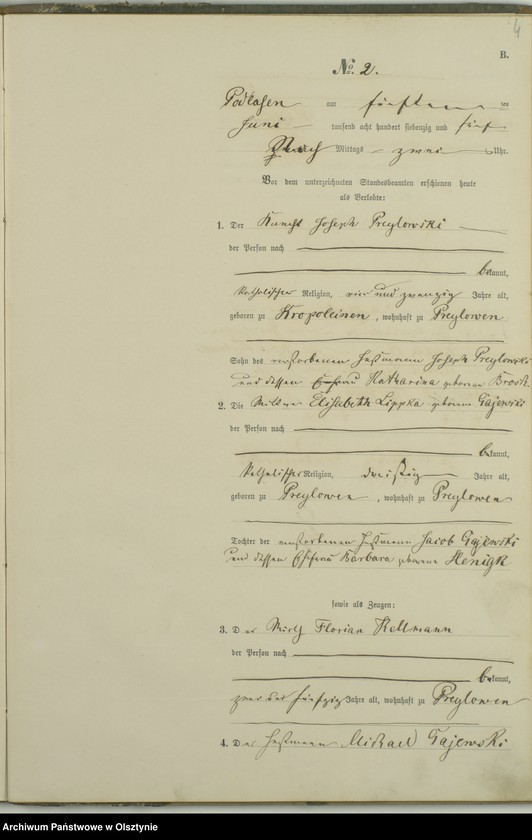 4
B.
№ 2.
Podlasen am fünften ten
Juni tausend acht hundert siebenzig und fünf
Nach Mittags zwei Uhr.
Vor dem unterzeichneten Standesbeamten erschienen heute
als Verlobte:
1. Der Knecht Joseph Preylowski
der Person nach
bekannt,
katholischer Religion, vier und zwanzig Jahre alt,
geboren zu Kropoleinen, wohnhaft zu Preylowen
Sohn des verstorbenen Joseph Preylowski
und dessen Ehefrau Katharina geborene
2. Die Wittwe Elisabeth Lippka geborne Gajewski
der Person nach
bekannt,
katholischer Religion, dreißig Jahre alt,
geboren zu Preylowen, wohnhaft zu Preylowen
Tochter der verstorbenen Jacob Gajewski
und dessen Ehefrau Barbara geborene Henigk
sowie als Zeugen:
3. Der Wirth Florian Kellmann
der Person nach
bekannt,
zwei und fünfzig Jahre alt, wohnhaft zu Preylowen
4. Der Michael Gajewski
Archiwum Państwowe w Olsztynie